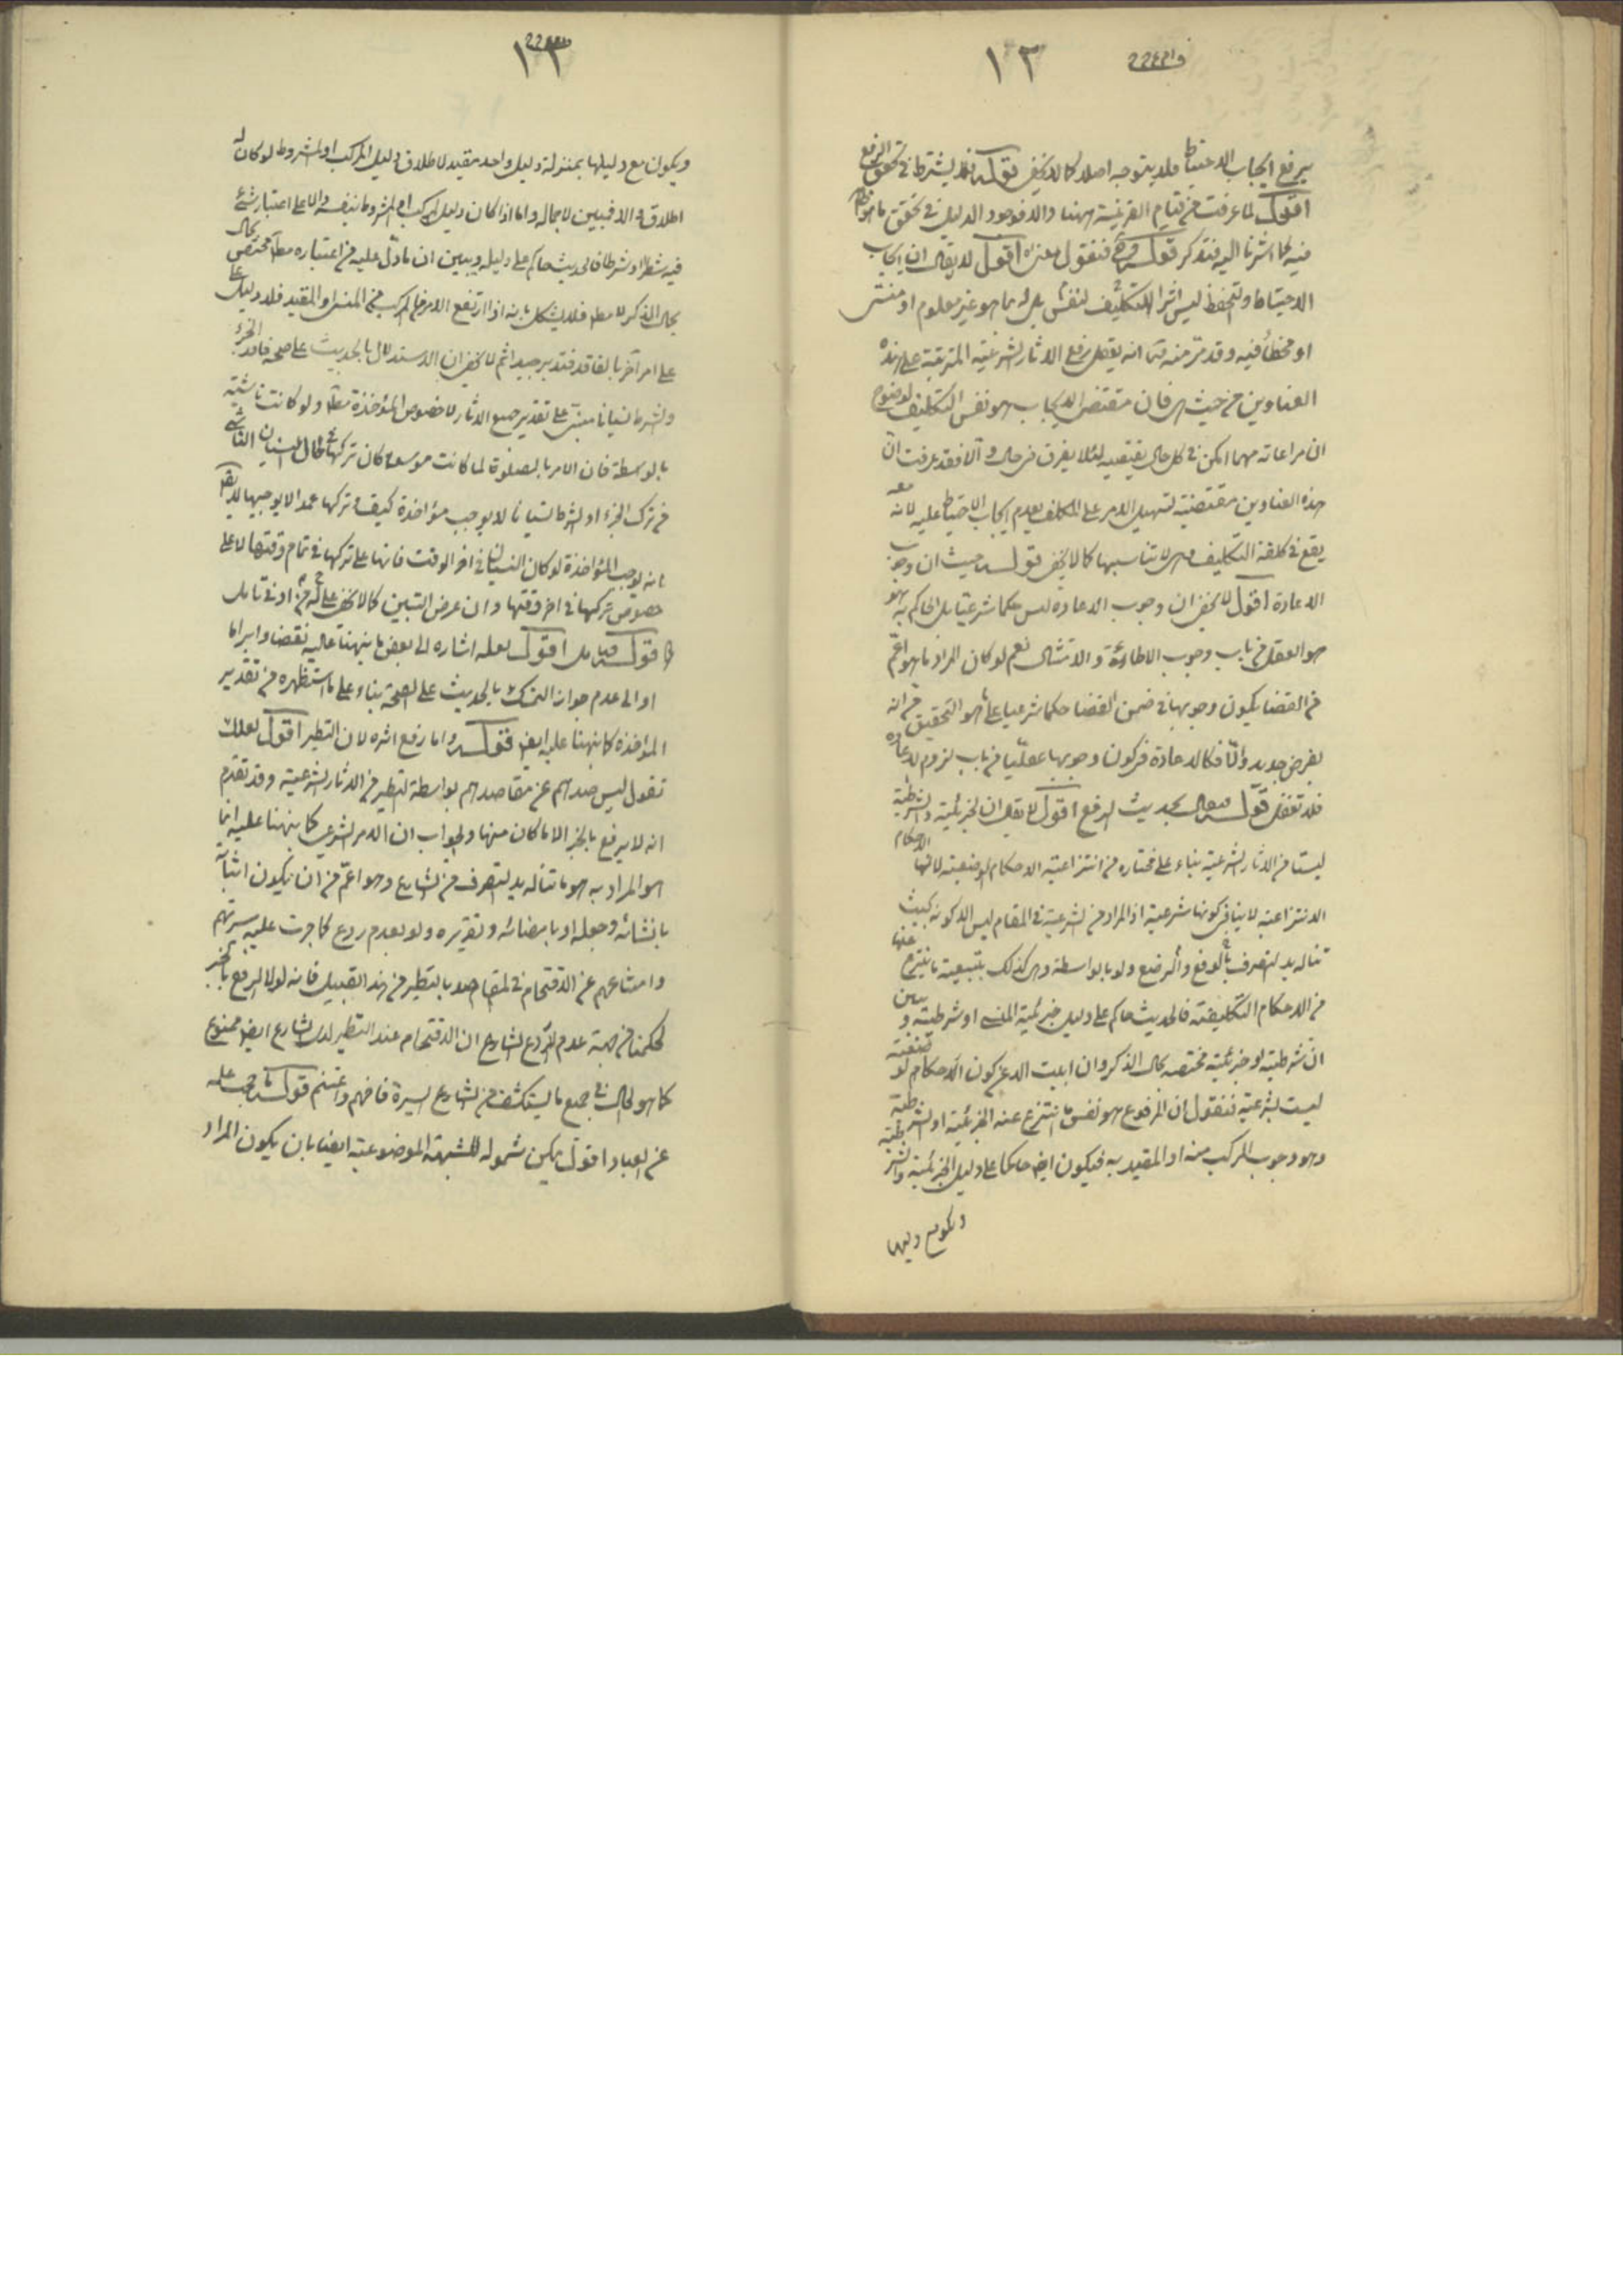 ١٣
يرفع ايجاب الاحتياط فلا يتوجه اصلا كما لا يخفى قوله فلا يشترط في تحقق الرفع
اقول لما عرفت من قيام القرينة ههنا والا فوجود الدليل في تحقق
فيه كما اشرنا اليه فتذكر قوله فنقول معنى اقول لا يقال ان ايجاب
الاحتياط والتحفظ ليس اثرا للتكليف لنفس بل بما هو غير معلوم او منسى
او مخطأ فيه وقد مر منه انه يعقل رفع الاثار الشرعية المترتبة على هذه
العناوين من حيث هى فان مقتضى الايجاب هو نفس التكليف لوضوح
ان مراعاته مهما امكن في كل حال يقتضيه لئلا يفرق في حال والا فقد عرفت ان
هذه العناوين مقتضية لتسهيل الامر على المكلف بعدم ايجاب الاحتياط عليه لانه معه
يقع في كلفة التكليف وهى لا تناسبها كما لا يخفى قوله حيث ان وجوب
الاعادة اقول لا يخفى ان وجوب الاعادة ليس حكما شرعيا بل الحاكم به هو
هو العقل من باب وجوب الاطاعة والامتثال نعم لو كان المراد ما هو اعم
من القضا يكون وجوبها في ضمن القضا حكما شرعيا على ما هو التحقيق من انه
بفرض جديد والا فكالاعادة في كون وجوبها عقليا من باب لزوم الاعادة
فلا تغفل قوله بحديث الرفع اقول لا يقال ان الجزئية والشرطية
ليستا من الاثار الشرعية بناء على مختاره من انتزاعية الاحكام الوضعية لانها الاحكام
الانتزاعية لا ينافى كونها شرعية اذ المراد من الشرعية في المقام ليس الا كونه بحيث
تناله يد التصرف بالرفع والوضع ولو بالواسطة وهى كذلك بتبعية ما ينتزع عنها
من الاحكام التكليفية فالحديث حاكم على دليل جزئية المنسى او شرطيته و يبين
ان شرطيته او جزئيته مختصة بحال الذكر وان ابيت الا عن كون الاحكام الوضعية
ليست بشرعية فنقول ان المرفوع هو نفس ما انتزع عنه الجزئية او الشرطية
وهو وجوب المركب منه او المقيد به فيكون ايض حاكما على دليل الجزئية والشرطية
ويكون مع دليلها
١٣
ويكون مع دليلها بمنزلة دليل واحد مقيد لاطلاق دليل المركب او المشروط لو كان له
اطلاق والا فيبين لاجماله واما اذا كان دليل المركب او المشروط بنفسه دالا على اعتبار شئ
فيه شطرا او شرطا فالحديث حاكم على دليله ويبين ان ما دل عليه من اعتباره مط مختص بحال
بحال الذكر لا مط فلا يشكل بانه اذا ارتفع الامر عن المركب من المنسى او المقيد فلا دليل على
على امر آخر بالفاقد فتدبر جيدا ثم لا يخفى ان الاستدلال بالحديث على صحة فاقد الجزء
والشرط نسيانا مبنى على تقدير جميع الاثار لا خصوص المؤاخذة مط ولو كانت ناشئة
بالواسطة فان الامر بالصلوة لما كانت موسعا كان تركها حال النسيان الناشى
من ترك الجزء او الشرط نسيانا لا يوجب مؤاخذة كيف وتركها عمدا لا يوجبها لا يقال
انه يوجب المؤاخذة لو كان النسيان في اخر الوقت فانها على تركها في تمام وقتها لا على
خصوص تركها في اخر وقتها وان عرض النسيان كما لا يخفى على من له ادنى تامل
قوله فتامل اقول لعله اشارة الى بعض ما نبهنا عليه نقضا وابراما
او الى عدم جواز التمسك بالحديث على الصحة بناء على ما استظهره من تقدير
المؤاخذة كما نبهنا عليه ايض قوله واما رفع اثره لان التطير اقول لعلك
تقول ليس صدهم عن مقاصدهم بواسطة التطير من الاثار الشرعية وقد تقدم
انه لا يرفع بالخبر الا ما كان منها والجواب ان الامر الشرعى كما نبهنا عليه انما
هو المراد به هو ما تناله يد التصرف من الشارع وهو اعم من ان يكون اثباته
بانشائه وجعله او بامضائه وتقريره ولو بعدم ردع كما جرت عليه سيرتهم
وامتناعهم عن الاقتحام في المقاصد بالتطير من هذا القبيل فانه لولا الرفع بالخبر
لحكمنا من جهة عدم الردع الشارع ان الاقتحام عند التطير لدى الشارع ايض ممنوع
كما هو الحال في جميع ما يستكشف من الشارع السيرة فافهم واغتنم قوله ما حجب علمه
عن العباد اقول يمكن شموله للشبهة الموضوعية ايضا بان يكون المراد